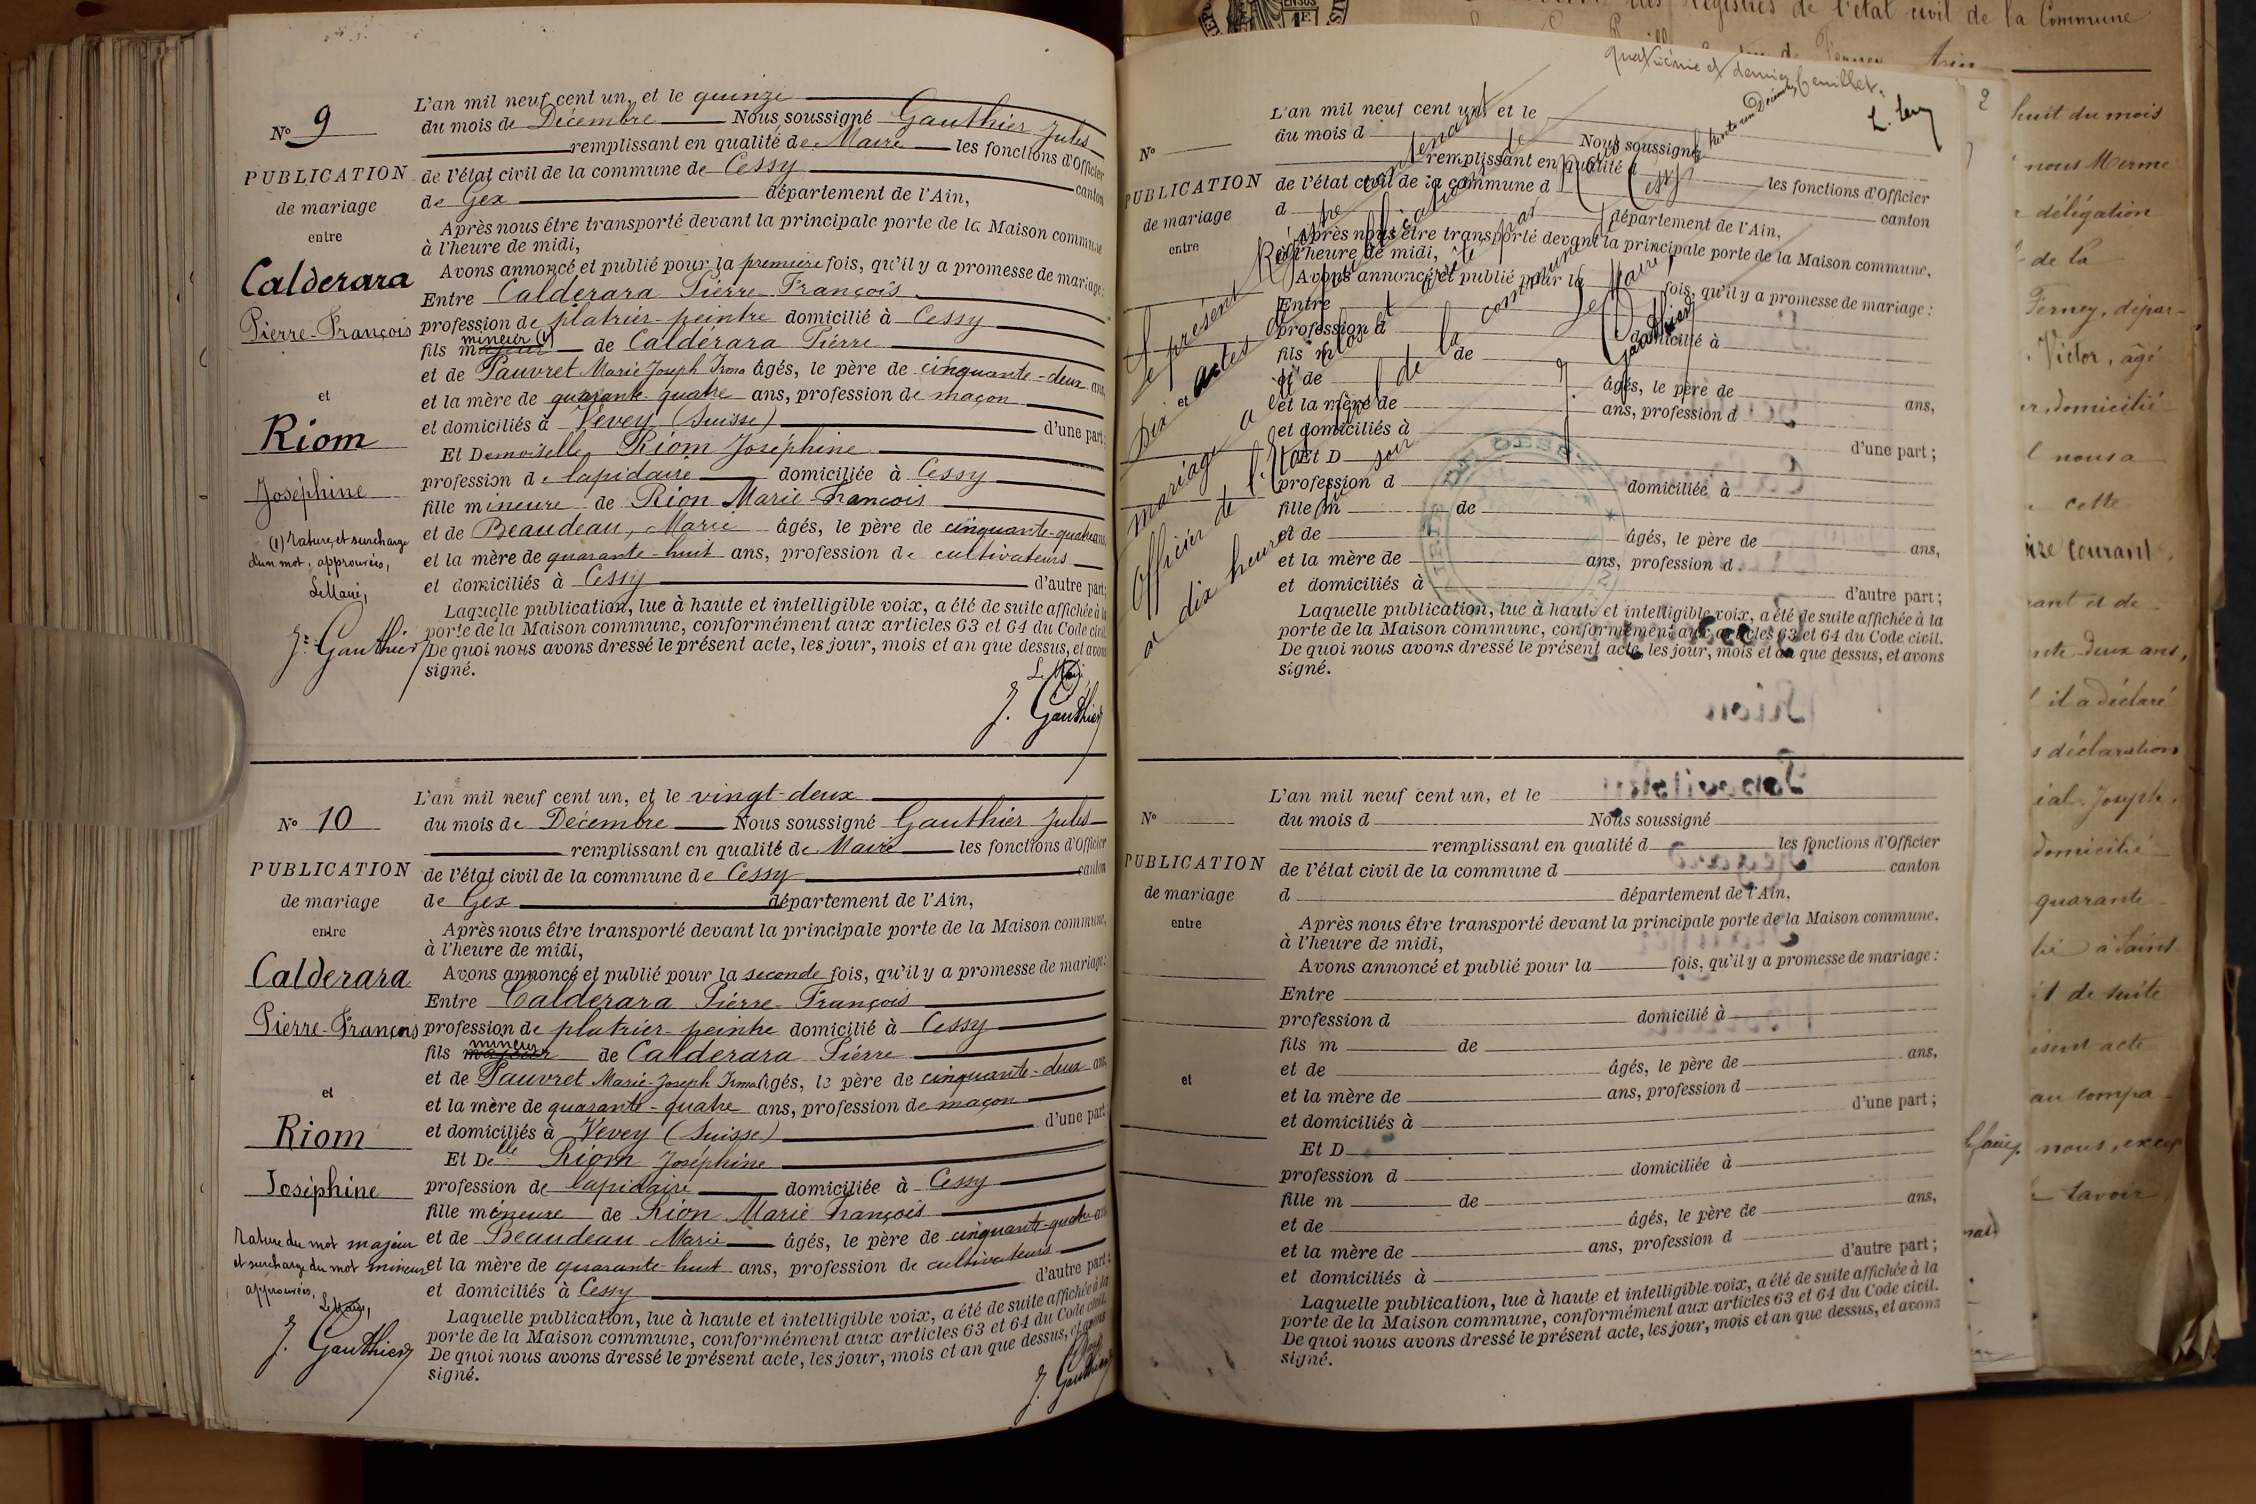 N° 9
PUBLICATION
de mariage
entre
Calderara
Pierre-François
et
Riom
Joséphine
(1) Rature et surcharge
d'un mot, approuvées,
Le Maire,
J. Gauthier
L'an mil neuf cent un, et le quinze
du mois de Décembre Nous soussigné Gauthier Jules
remplissant en qualité de Maire les fonctions d'Officier
de l'état civil de la commune de Cessy canton
de Gex département de l'Ain,
Après nous être transporté devant la principale porte de la Maison commune
à l'heure de midi,
Avons annoncé et publié pour la première fois, qu'il y a promesse de mariage:
Entre Calderara Pierre-François
profession de platrier-peintre domicilié à Cessy
fils mineur (1) de Caldérara Pierre
et de Pauvret Marie Joseph Irma âgés, le père de cinquante-deux ans,
et la mère de quarante-quatre ans, profession de maçon
et domiciliés à Vevey (Suisse) d'une part;
Et Demoiselle Riom Joséphine
profession de lapidaire domiciliée à Cessy
fille mineure de Rion Marie François
et de Beaudeau, Marie âgés, le père de cinquante-quatre ans,
et la mère de quarante-huit ans, profession de cultivateurs
et domiciliés à Cessy d'autre part;
Laquelle publication, lue à haute et intelligible voix, a été de suite affichée à la
porte de la Maison commune, conformément aux articles 63 et 64 du Code civil.
De quoi nous avons dressé le présent acte, les jour, mois et an que dessus, et avons
signé.
Le Maire,
J. Gauthier
N° 10
PUBLICATION
de mariage
entre
Calderara
Pierre-François
et
Riom
Joséphine
Rature du mot majeur
et surcharge du mot mineur
approuvées,
Le Maire,
J. Gauthier
L'an mil neuf cent un, et le vingt-deux
du mois de Décembre Nous soussigné Gauthier Jules
remplissant en qualité de Maire les fonctions d'Officier
de l'état civil de la commune de Cessy canton
de Gex département de l'Ain,
Après nous être transporté devant la principale porte de la Maison commune,
à l'heure de midi,
Avons annoncé et publié pour la seconde fois, qu'il y a promesse de mariage:
Entre Calderara Pierre-François
profession de platrier-peintre domicilié à Cessy
fils mineur de Calderara Pierre
et de Pauvret Marie-Joseph Irma âgés, le père de cinquante-deux ans,
et la mère de quarante-quatre ans, profession de maçon
et domiciliés à Vevey (Suisse) d'une part
Et Delle Riom Joséphine
profession de lapidaire domiciliée à Cessy
fille mineure de Rion Marie François
et de Beaudeau Marie âgés, le père de cinquante-quatre ans
et la mère de quarante-huit ans, profession de cultivateurs
et domiciliés à Cessy d'autre part;
Laquelle publication, lue à haute et intelligible voix, a été de suite affichée à la
porte de la Maison commune, conformément aux articles 63 et 64 du Code civil.
De quoi nous avons dressé le présent acte, les jour, mois et an que dessus, et avons
signé.
J. Gauthier
Quatrième et dernier feuillet.
N°
PUBLICATION
de mariage
entre
et
L'an mil neuf cent un, et le
du mois d Nous soussigné
remplissant en qualité d les fonctions d'Officier
de l'état civil de la commune d canton
d département de l'Ain,
Après nous être transporté devant la principale porte de la Maison commune,
à l'heure de midi,
Avons annoncé et publié pour la fois, qu'il y a promesse de mariage:
Entre
profession d domicilié à
fils m de
et de âgés, le père de ans,
et la mère de ans, profession d
et domiciliés à d'une part;
Et D
profession d domiciliée à
fille m de
et de âgés, le père de ans,
et la mère de ans, profession d
et domiciliés à d'autre part;
Laquelle publication, lue à haute et intelligible voix, a été de suite affichée à la
porte de la Maison commune, conformément aux articles 63 et 64 du Code civil.
De quoi nous avons dressé le présent acte, les jour, mois et an que dessus, et avons
signé.
Le présent Registre contenant
Dix actes de publications de
mariage a été clos et arrêté par
Officier de l'Etat civil de la commune de Cessy
à dix heures du soir
Le Maire,
J. Gauthier
N°
PUBLICATION
de mariage
entre
et
L'an mil neuf cent un, et le
du mois d Nous soussigné
remplissant en qualité d les fonctions d'Officier
de l'état civil de la commune d canton
d département de l'Ain,
Après nous être transporté devant la principale porte de la Maison commune,
à l'heure de midi,
Avons annoncé et publié pour la fois, qu'il y a promesse de mariage:
Entre
profession d domicilié à
fils m de
et de âgés, le père de ans,
et la mère de ans, profession d
et domiciliés à d'une part;
Et D
profession d domiciliée à
fille m de
et de âgés, le père de ans,
et la mère de ans, profession d
et domiciliés à d'autre part;
Laquelle publication, lue à haute et intelligible voix, a été de suite affichée à la
porte de la Maison commune, conformément aux articles 63 et 64 du Code civil.
De quoi nous avons dressé le présent acte, les jour, mois et an que dessus, et avons
signé.
des registres de l'état civil de la Commune
2
huit du mois
nous Merme
délégation
de la
Ferney, dépar-
Victor, âgé
domicilié
nous a
cette
courant.
rant et de
deux ans,
il a déclaré
déclaration
Joseph,
domicilié
quarante
à Saint
de suite
acte
au compa
nous, excep
savoir